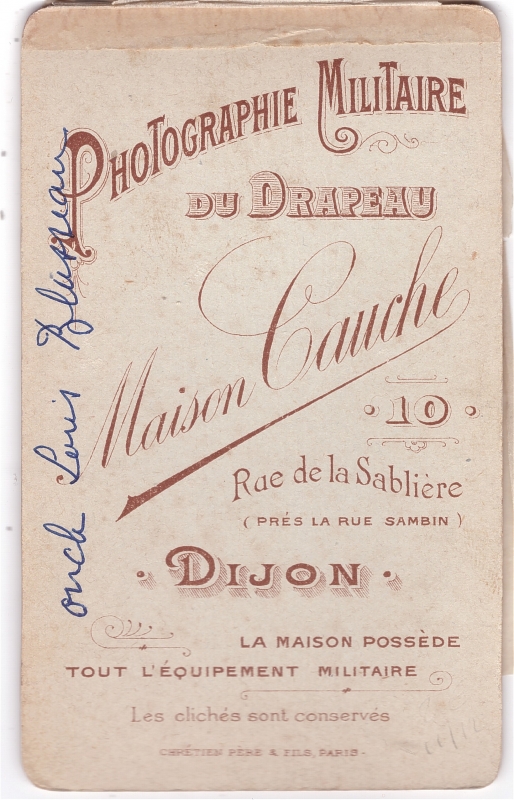 PHOTOGRAPHIE MILITAIRE
DU DRAPEAU
Maison Cauche
10
Rue de la Sablière
(PRÉS LA RUE SAMBIN)
DIJON
LA MAISON POSSÈDE
TOUT L'ÉQUIPEMENT MILITAIRE
Les clichés sont conservés
CHRÉTIEN PÈRE & FILS, PARIS-
onck Louis